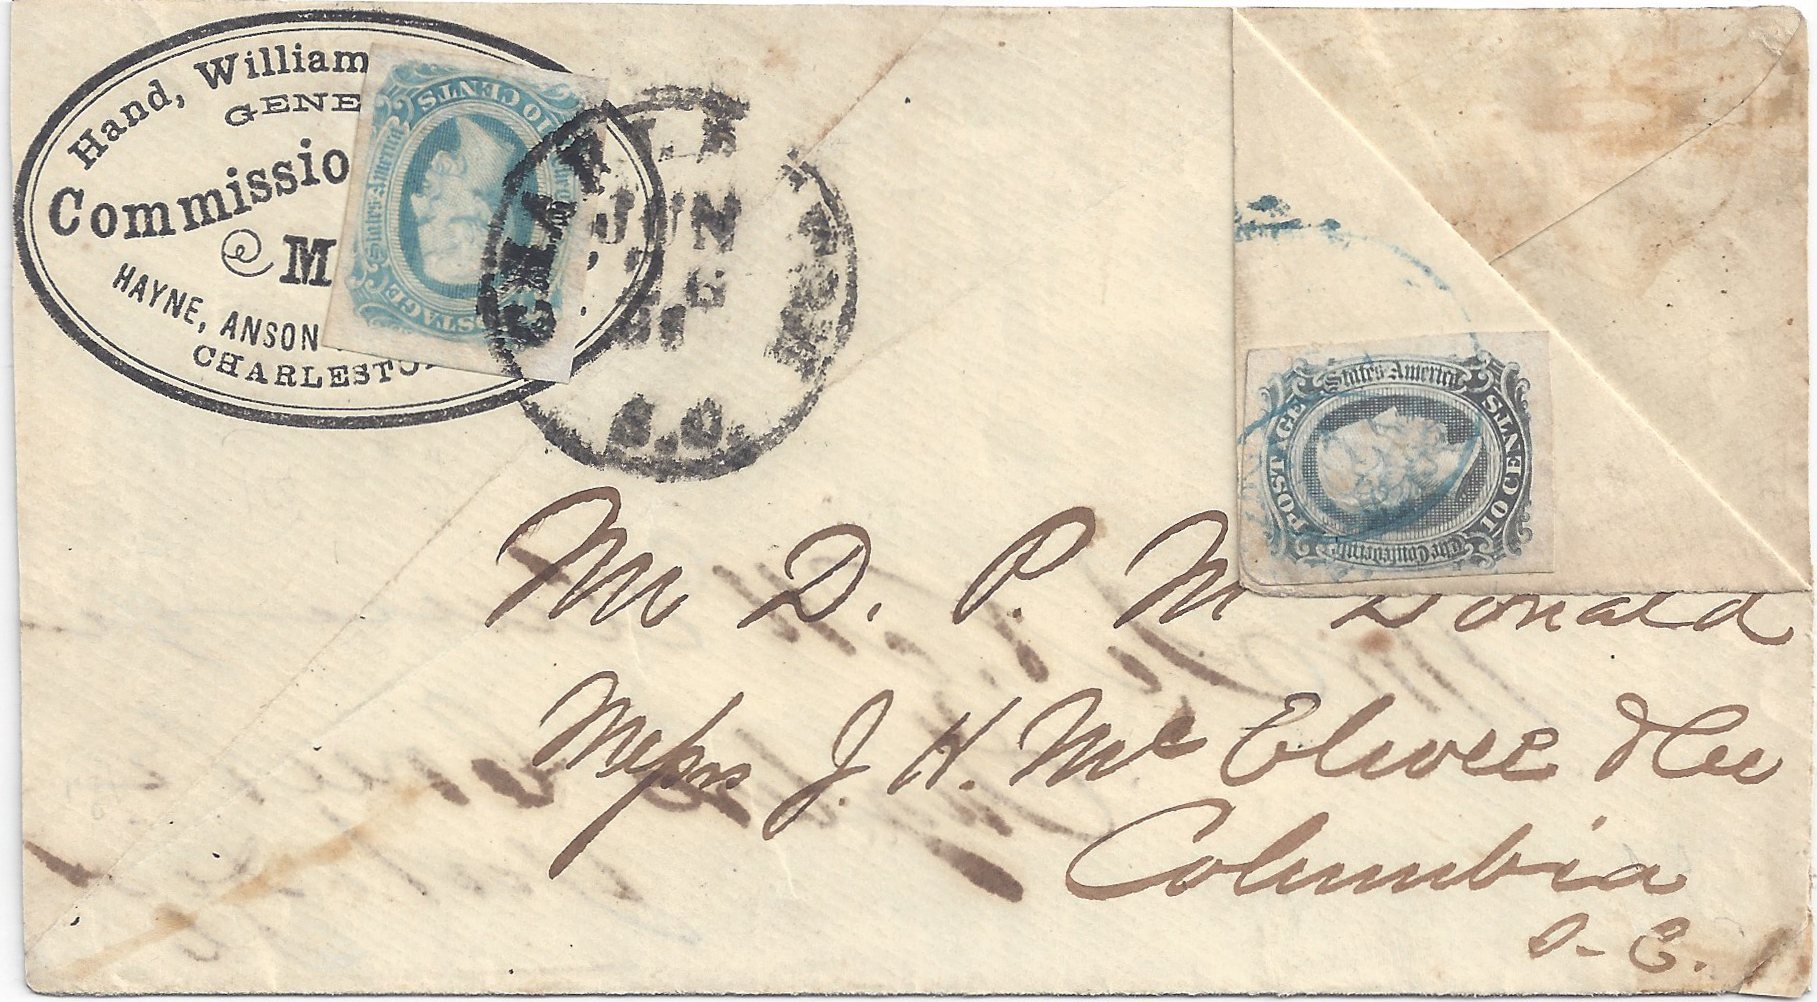 Hand, William
GENE
Commissio
M
HAYNE, ANSON
CHARLESTO
10 CENTS
States America
POSTAGE
CHARLESTON
JUN
S.C.
States America
POSTAGE
10 CENTS
The Confederate
Mr D. P. McDonald
Messrs J. H. McElwee & Co
Columbia
S. C.